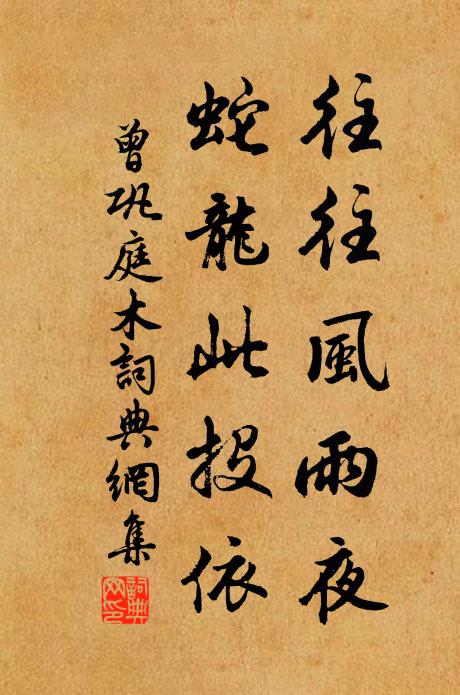 往往風雨夜
蛇龍此投依
曾巩庭木詞典網集
詞典網印